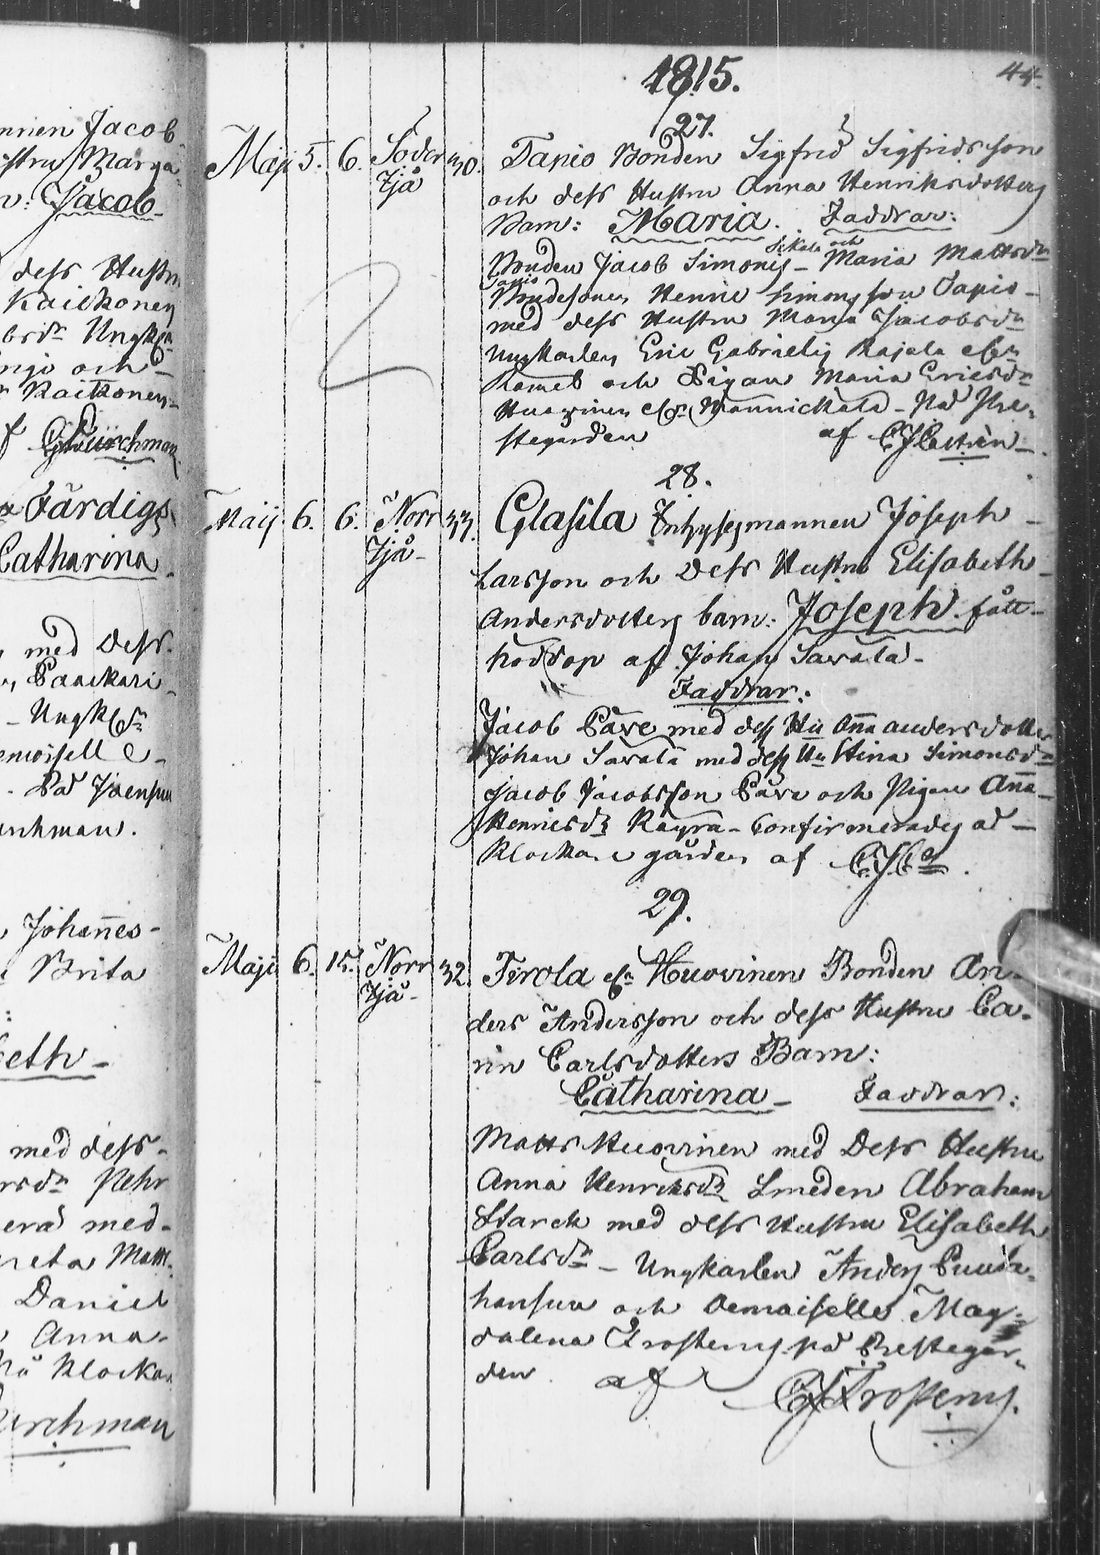 nrien Jacob
stru Marga
n: Jacob
dess Hustru
Kaickonen
bsdr Ungk
och
Kaickonen
af Churchman
Färdigs
Catharina
med Dess
Paackari
Ungk
På
urchman.
Johannes
Brita
eth
med dess
rsdr Pehr
med
reta Matts
Daniel
Anna
Klockar
urchman
1815. 44.
27.
Maji 5. 6. Söder 30. Tapio Bonden Sigfrid Sigfridsson
Tjå och dess Hustru Anna Henriksdotters
Barn: Maria. Faddrar:
Sikala och
Bonden Jacob Simones Maria Mattsdr
Tapio
Bondesonen Henric Simonsson Tapio
med dess Hustru Maria Jacobsdr
Ungkarlen Eric Gabrielis Kajala
och Pigan Maria Ericsdr
Huovinen Mannickala På Pre-
stegården af CJCastrén
28.
Maij 6. 6. Norr 33. Glasila Inhysesmannen Joseph
Tjå Larsson och Dess Hustru Elisabeth
Andersdotters barn: Joseph. fått
nöddop af Johan Savala
Faddrar:
Jacob Päve med dess Hu Anna andersdotter
Johan Savala med dess Hu Stina Simonsdr
Jacob Jacobsson Päve och Pigan Anna
Henricsdr Käyrä Confirmerades på
Klockare gården af CJC
29.
Maji 6. 15. Norr 32. Tirola Huovinen Bonden An-
Tjå ders Andersson och dess Hustru Ca-
rin Carlsdotters Barn:
Catharina Faddrar:
Matts Huovinen med Dess Hustru
Anna Henriksdr Smeden Abraham
Starck med dess Hustru Elisabeth
Carlsdr Ungkarlen Anders
och Demoiselle Mag-
dalena Frosterus på Prestegår-
den af Frosterus.